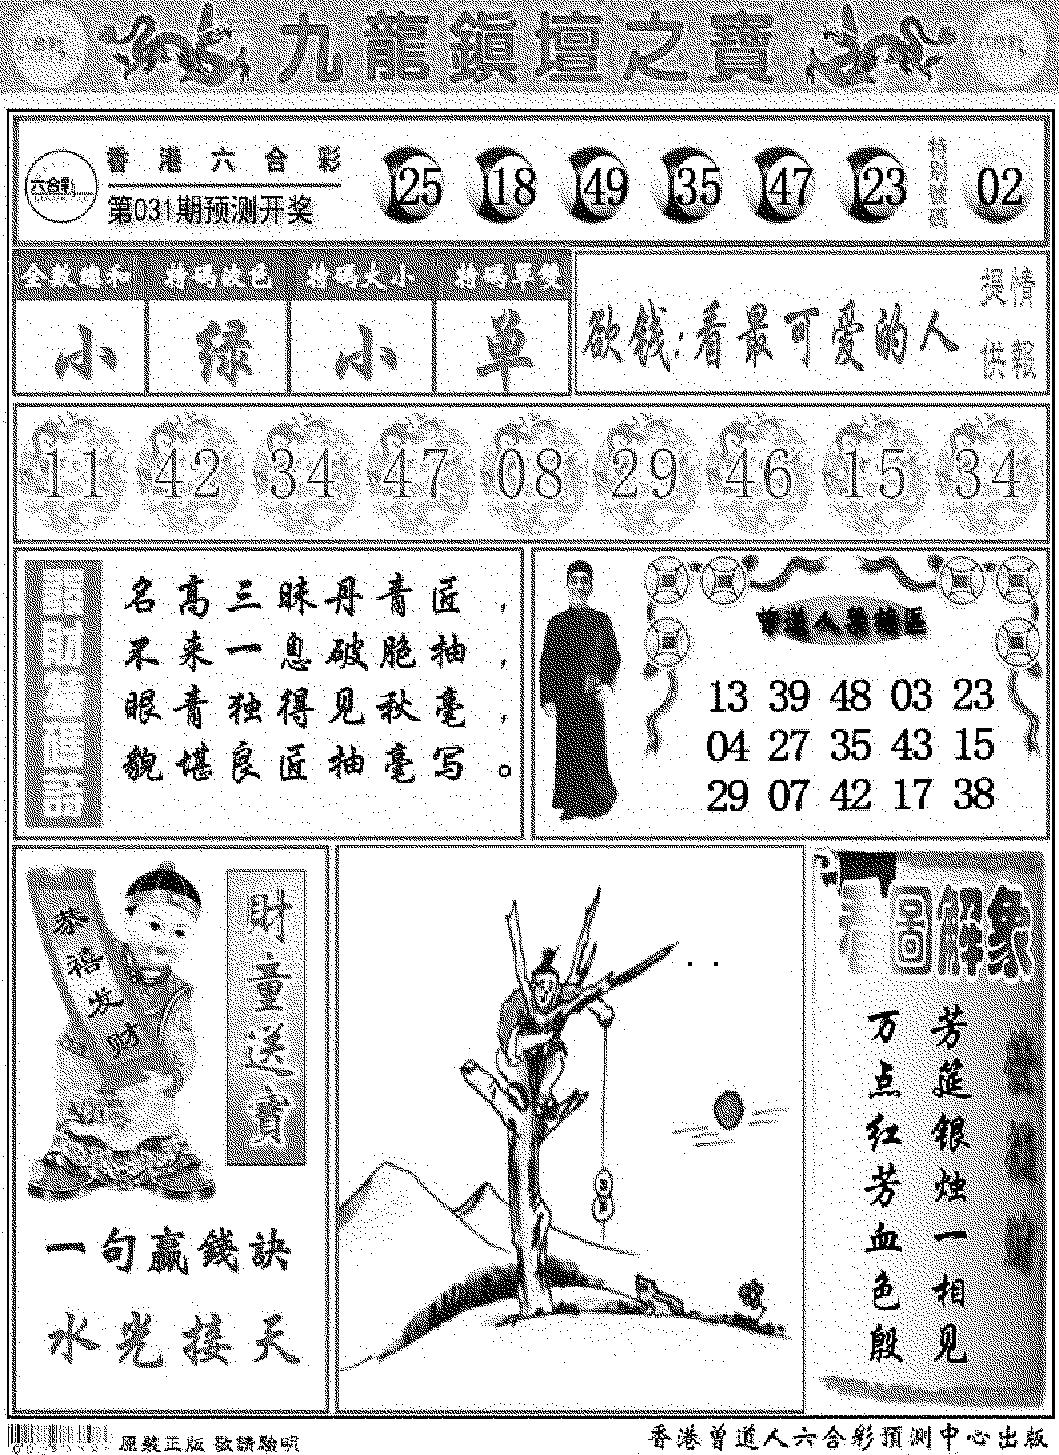 九龍鎮壇之寶
香港六合彩
六合彩
第031期预测开奖
25 18 49 35 47 23
特别號碼
02
全数總和 特码波色 特码大小 特码單雙
小 绿 小 单
欲钱:看最可爱的人
提情
供報
11 42 34 47 08 29 46 15 34
名高三昧丹青匠,
不来一息破胞抽,
眼青独得见秋毫,
貌堪良匠抽毫写。
13 39 48 03 23
04 27 35 43 15
29 07 42 17 38
恭禧发财
財童送寶
一句赢錢訣
水光接天
圖解象
芳筵银烛一相见
万点红芳血色殷
原裝正版 敬請驗明
香港曾道人六合彩預測中心出版